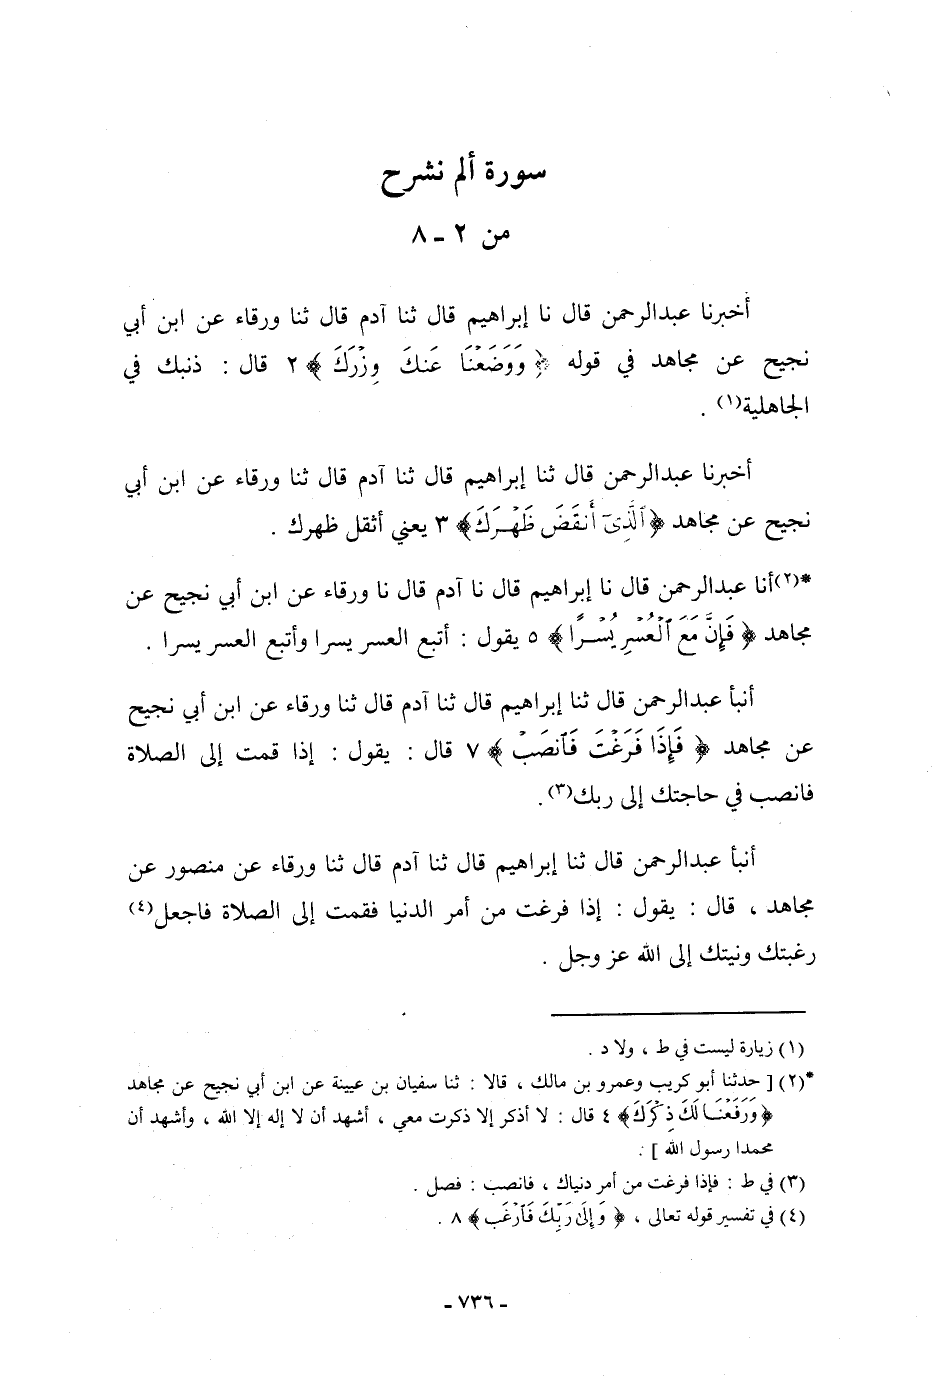 سورة ألم نشرح
من ٢ - ٨
أخبرنا عبدالرحمن قال نا إبراهيم قال ثنا آدم قال ثنا ورقاء عن ابن أبي
نجيح عن مجاهد في قوله ﴿ وَوَضَعْنَا عَنكَ وِزْرَكَ ﴾ ٢ قال : ذنبك في
الجاهلية(١) .
أخبرنا عبدالرحمن قال ثنا إبراهيم قال ثنا آدم قال ثنا ورقاء عن ابن أبي
نجيح عن مجاهد ﴿ ٱلَّذِىٓ أَنقَضَ ظَهْرَكَ ﴾ ٣ يعني أثقل ظهرك .
*(٢) أنا عبدالرحمن قال نا إبراهيم قال نا آدم قال نا ورقاء عن ابن أبي نجيح عن
مجاهد ﴿ فَإِنَّ مَعَ ٱلْعُسْرِ يُسْرًا ﴾ ٥ يقول : أتبع العسر يسرا وأتبع العسر يسرا .
أنبأ عبدالرحمن قال ثنا إبراهيم قال ثنا آدم قال ثنا ورقاء عن ابن أبي نجيح
عن مجاهد ﴿ فَإِذَا فَرَغْتَ فَٱنصَبْ ﴾ ٧ قال : يقول : إذا قمت إلى الصلاة
فانصب في حاجتك إلى ربك(٣).
أنبأ عبدالرحمن قال ثنا إبراهيم قال ثنا آدم قال ثنا ورقاء عن منصور عن
مجاهد ، قال : يقول : إذا فرغت من أمر الدنيا فقمت إلى الصلاة فاجعل(٤)
رغبتك ونيتك إلى الله عز وجل .
(١) زيارة ليست في ط ، ولا د .
*(٢) [ حدثنا أبو كريب وعمرو بن مالك ، قالا : ثنا سفيان بن عيينة عن ابن أبي نجيح عن مجاهد
﴿ وَرَفَعْنَا لَكَ ذِكْرَكَ ﴾ ٤ قال : لا أذكر إلا ذكرت معي ، أشهد أن لا إله إلا الله ، وأشهد أن
محمدا رسول الله ] .
(٣) في ط : فإذا فرغت من أمر دنياك ، فانصب : فصل .
(٤) في تفسير قوله تعالى ، ﴿ وَإِلَىٰ رَبِّكَ فَٱرْغَب ﴾ ٨ .
- ٧٣٦ -